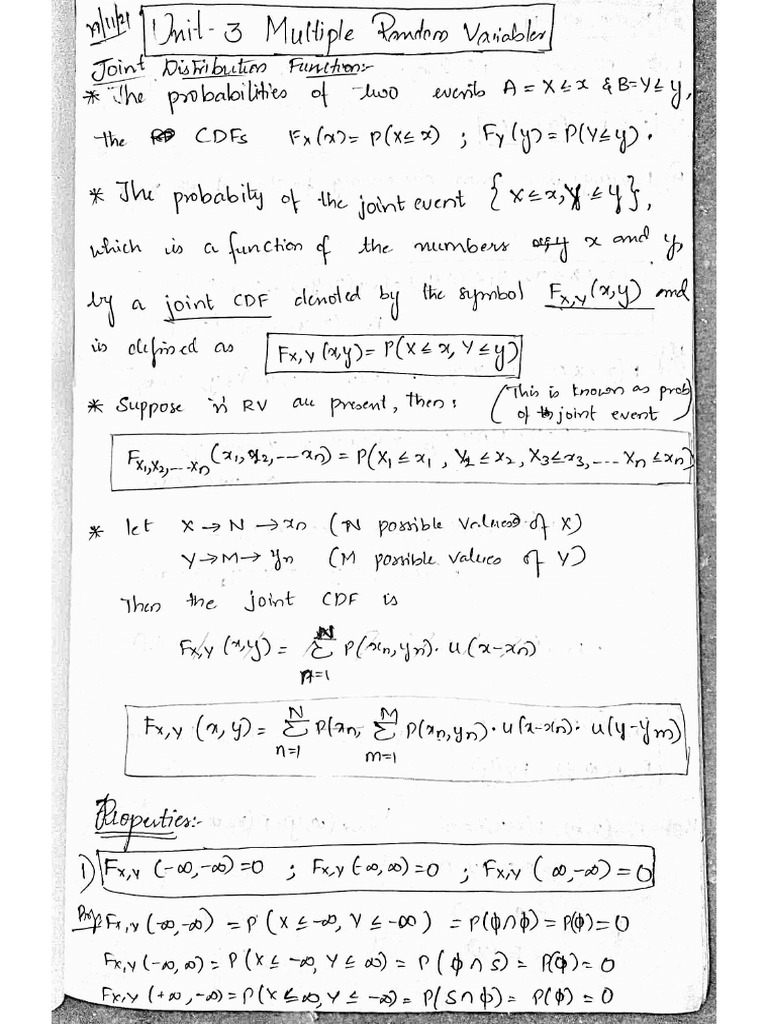 Unit-3 Multiple Random Variables
Joint Distribution Function:-
* The probabilities of two events A = X ≤ x & B = Y ≤ y,
the CDFs Fx(x) = P(X ≤ x) ; Fy(y) = P(Y ≤ y).
* The probabity of the joint event {X ≤ x, Y ≤ y},
which is a function of the numbers x and y
by a joint CDF denoted by the symbol Fx,y(x,y) and
is defined as Fx,y(x,y) = P(X ≤ x, Y ≤ y)
(This is known as prob
* Suppose 'n' RV are present, then:
of joint event)
Fx1,x2,---xn(x1, x2, --- xn) = P(X1 ≤ x1, X2 ≤ x2, X3 ≤ x3, ---- Xn ≤ xn)
* let X → N → xn (N possible values of X)
Y → M → yn (M possible values of Y)
Then the joint CDF is
Fx,y(x,y) = Σ P(xn,yn). u(x-xn)
n=1
N M
Fx,y(x,y) = Σ P(xn, Σ P(xn,yn). u(x-xn). u(y-ym)
n=1 m=1
Properties:-
1) Fx,y(-∞,-∞) = 0 ; Fx,y(-∞,∞) = 0 ; Fx,y(∞,-∞) = 0
Proof Fx,y(-∞,-∞) = P(X ≤ -∞, Y ≤ -∞) = P(ϕ∩ϕ) = P(ϕ) = 0
Fx,y(-∞,∞) = P(X ≤ -∞, Y ≤ ∞) = P(ϕ∩S) = P(ϕ) = 0
Fx,y(+∞,-∞) = P(X ≤ ∞, Y ≤ -∞) = P(S∩ϕ) = P(ϕ) = 0